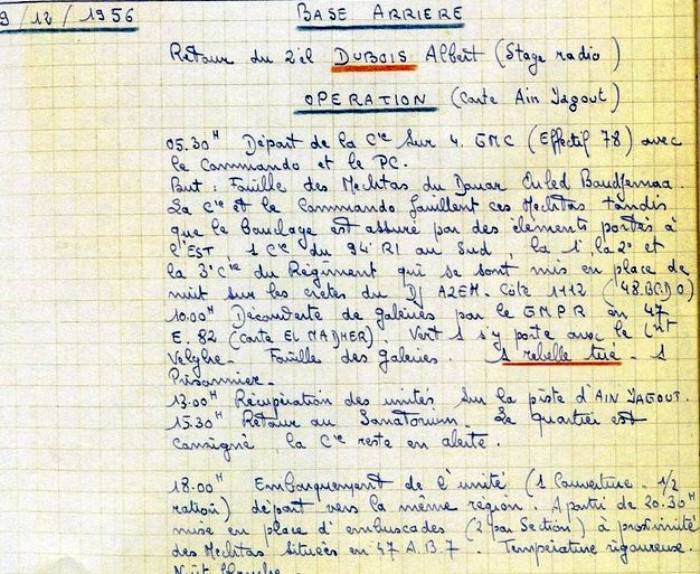 9/12/1956 BASE ARRIERE
Retour du 2°cl DUBOIS Albert (Stage radio)
OPERATION (Carte Ain Yagout)
05.30H Départ de la Cie sur 4. GMC (Effectif 78) avec
le Commando et le PC.
But : Fouille des Mechtas du Douar Ouled Boudjemaa.
La Cie et le Commando fouillent ces Mechtas tandis
que le bouclage est assuré par des éléments portés à
l'EST 1 Cie du 94° RI au Sud, la 1°, la 2° et
la 3° Cie du Régiment qui se sont mis en place de
nuit sur les crêtes du Dj AZEM. Côte 1112 (48.BCDO)
10.00H Découverte de galeries par le GMPR en 47
E. 82 (Carte EL MADHER). Vert 1 s'y porte avec le Lnt
Velghe. Fouille des Galeries. 1 rebelle tué. 1
Prisonnier.
13.00H Récupération des unités sur la piste d'AIN YAGOUT.
15.30H Retour au Sanatorium. Le quartier est
consigné, la Cie reste en alerte.
18.00H Embarquement de l'unité (1 Couverture. 1/2
ration) départ vers la même région. A partir de 20.30H
mise en place d'embuscades (2 par Section) à proximité
des Mechtas situées en 47 A.B.7. Température rigoureuse.
Nuit blanche.